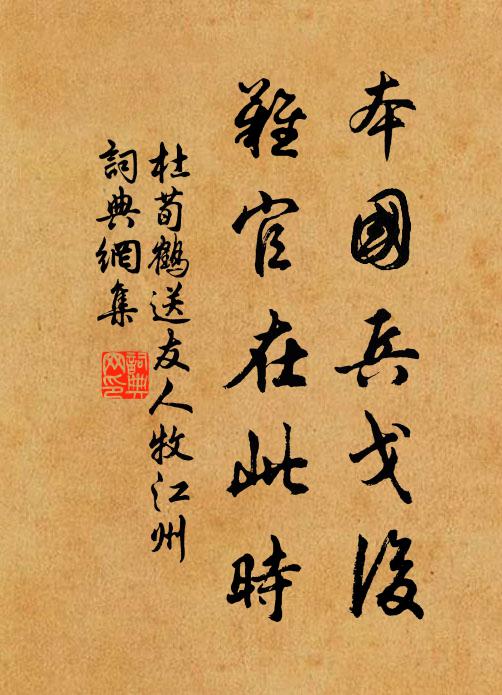 本國兵戈後
難官在此時
杜荀鶴送友人牧江州
詞典網集
詞典網印